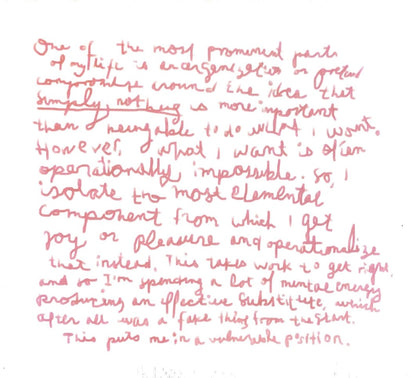 One of the most prominent parts
of my life is an organization or pretend
compromise around the idea that
simply, nothing is more important
than being able to do what I want.
However, what I want is often
operationally impossible. So, I
isolate the most elemental
component from which I get
joy or pleasure and operationalize
that instead. This takes work to get right.
and so I'm spending a lot of mental energy
producing an effective substitute, which
after all was a fake thing from the start.
This puts me in a vulnerable position.